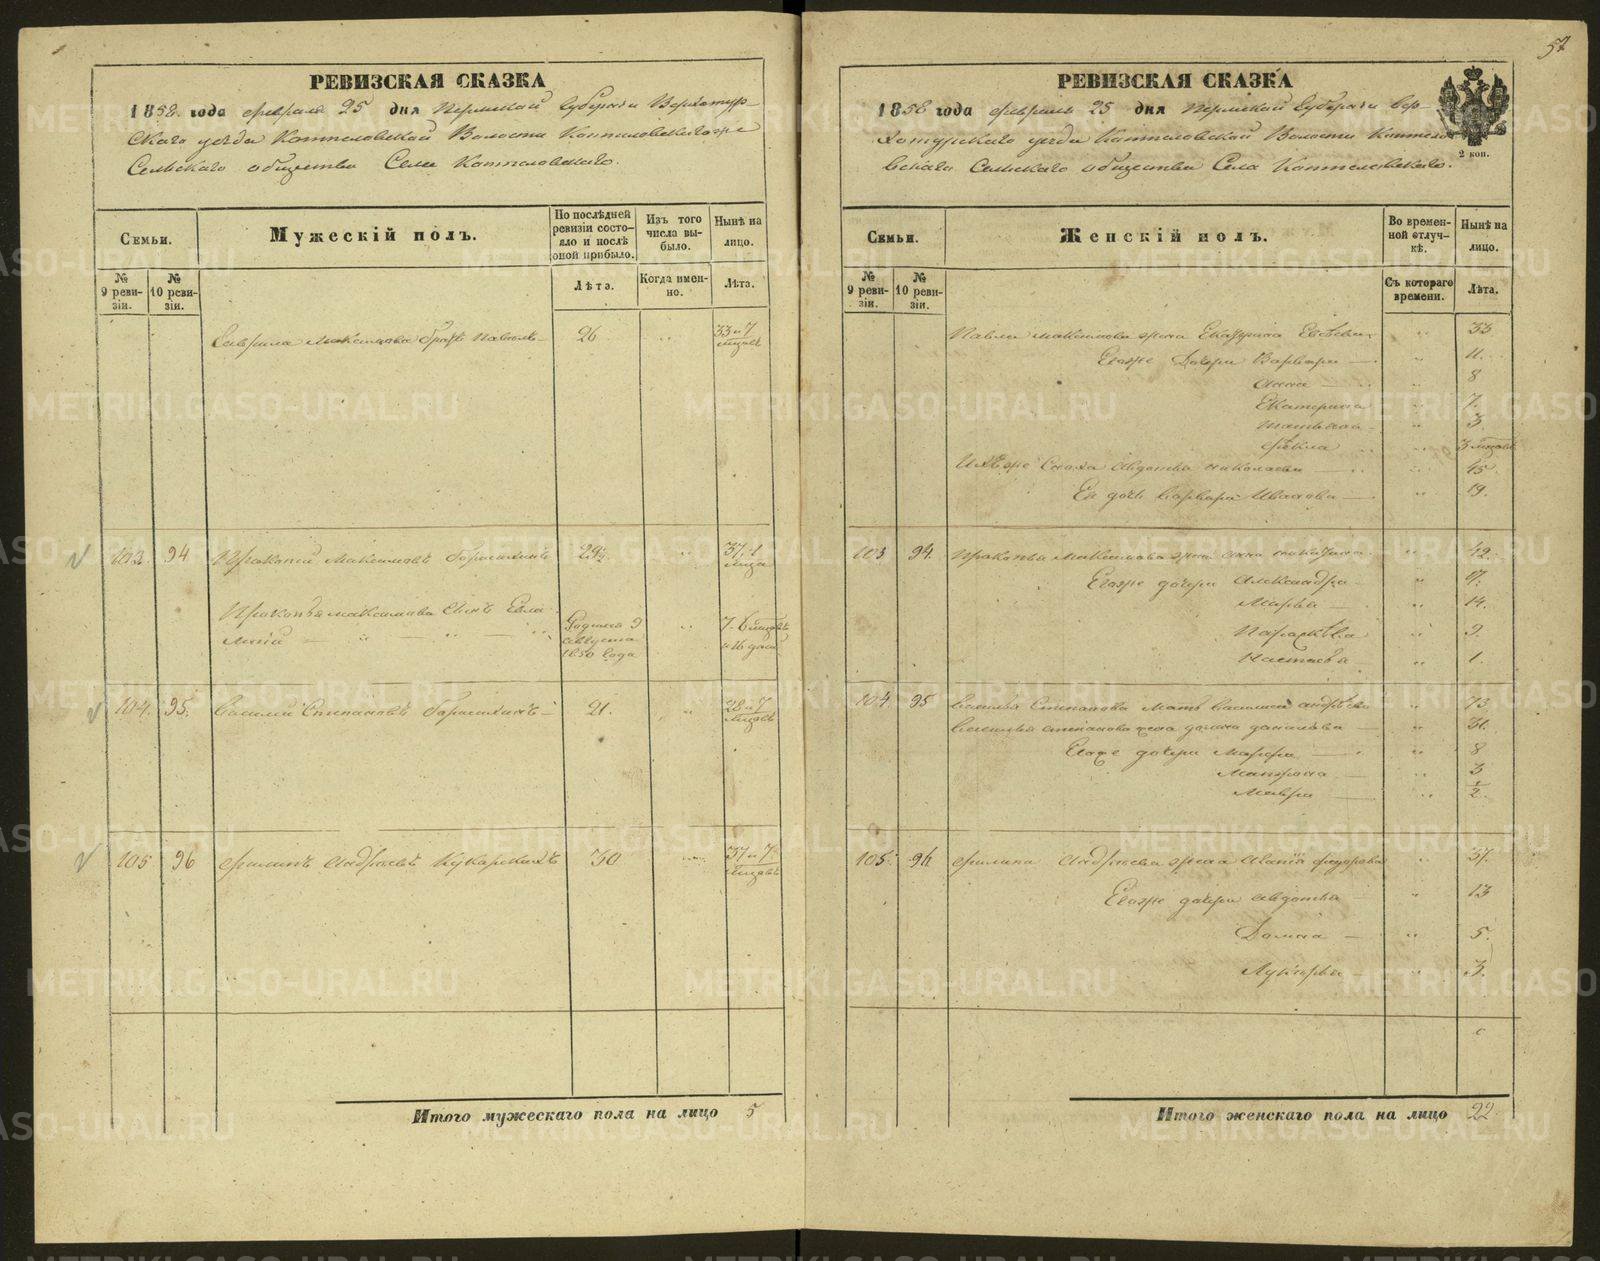 РЕВИЗСКАЯ СКАЗКА
1858 года февраля 25 дня Пермской Губернии Верхотур-
скаго уезда Коптеловской Волости Коптеловскагоже
Сельскаго общества Села Коптеловскаго.
Семьи.
Мужескій полъ.
По послѣдней ревизіи состояло и послѣ оной прибыло.
Изъ того числа выбыло.
Нынѣ на лицо.
№ 9 ревизіи.
№ 10 ревизіи.
Лѣта.
Когда именно.
Лѣта.
Гаврила Максимова братъ Павелъ 26 " 33 и 7 мѣсяцъ
103. 94 Прокопій Максимовъ 29½ " 37.1
Прокопья Максимова сынъ Евла-
мпій " " " Родился 9 августа 1850 года " 7. 6 мѣсяцъ и 16 дней
104. 95. Василий Степановъ 21. " 28 и 7 мѣсяцъ
105 96 Филипъ Андреевъ 30 " 37 и 7. мѣсяцъ
Итого мужескаго пола на лицо 5
57
РЕВИЗСКАЯ СКАЗКА
1858 года февраля 25 дня Пермской Губернии Вер-
хотурскаго уезда Коптеловской Волости Коптело-
вскаго Сельскаго общества Села Коптеловскаго.
2 коп.
Семьи.
Женскій полъ.
Во временной отлучкѣ.
Нынѣ на лицо.
№ 9 ревизіи.
№ 10 ревизіи.
Съ котораго времени.
Лѣта.
Павла Максимова жена Екатерина " 33
Егоже дочери Варвара " 11.
Анна " 8
Екатерина " 7.
Татьяна " 3
Фекла " 3 мѣсяцъ
Ихъже сноха Авдотья Николаева " 45
Ея дочь Варвара Иванова " 19.
103 94. Прокопья Максимова жена Анна " 42.
Егоже дочери Александра " 17.
Марья " 14.
Парасковья " 9.
Настасья " 1.
104. 95 Василья Степанова мать Василиса Андреева " 73.
Василья Степанова жена Домна Данилова " 31.
Егоже дочери Марфа " 8
Матрона " 3
Мавра " 1/2.
105. 96. Филипа Андреева жена Федорова " 37.
Егоже дочери Авдотья " 13
Домна " 5.
Лукерья " 3.
Итого женскаго пола на лицо 22
METRIKI.GASO-URAL.RU